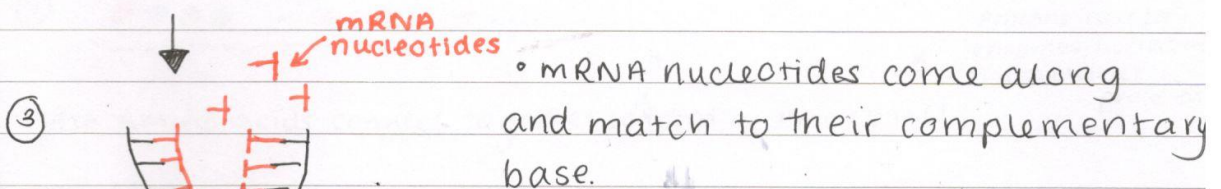 mRNA
nucleotides
③
• mRNA nucleotides come along
and match to their complementary
base.